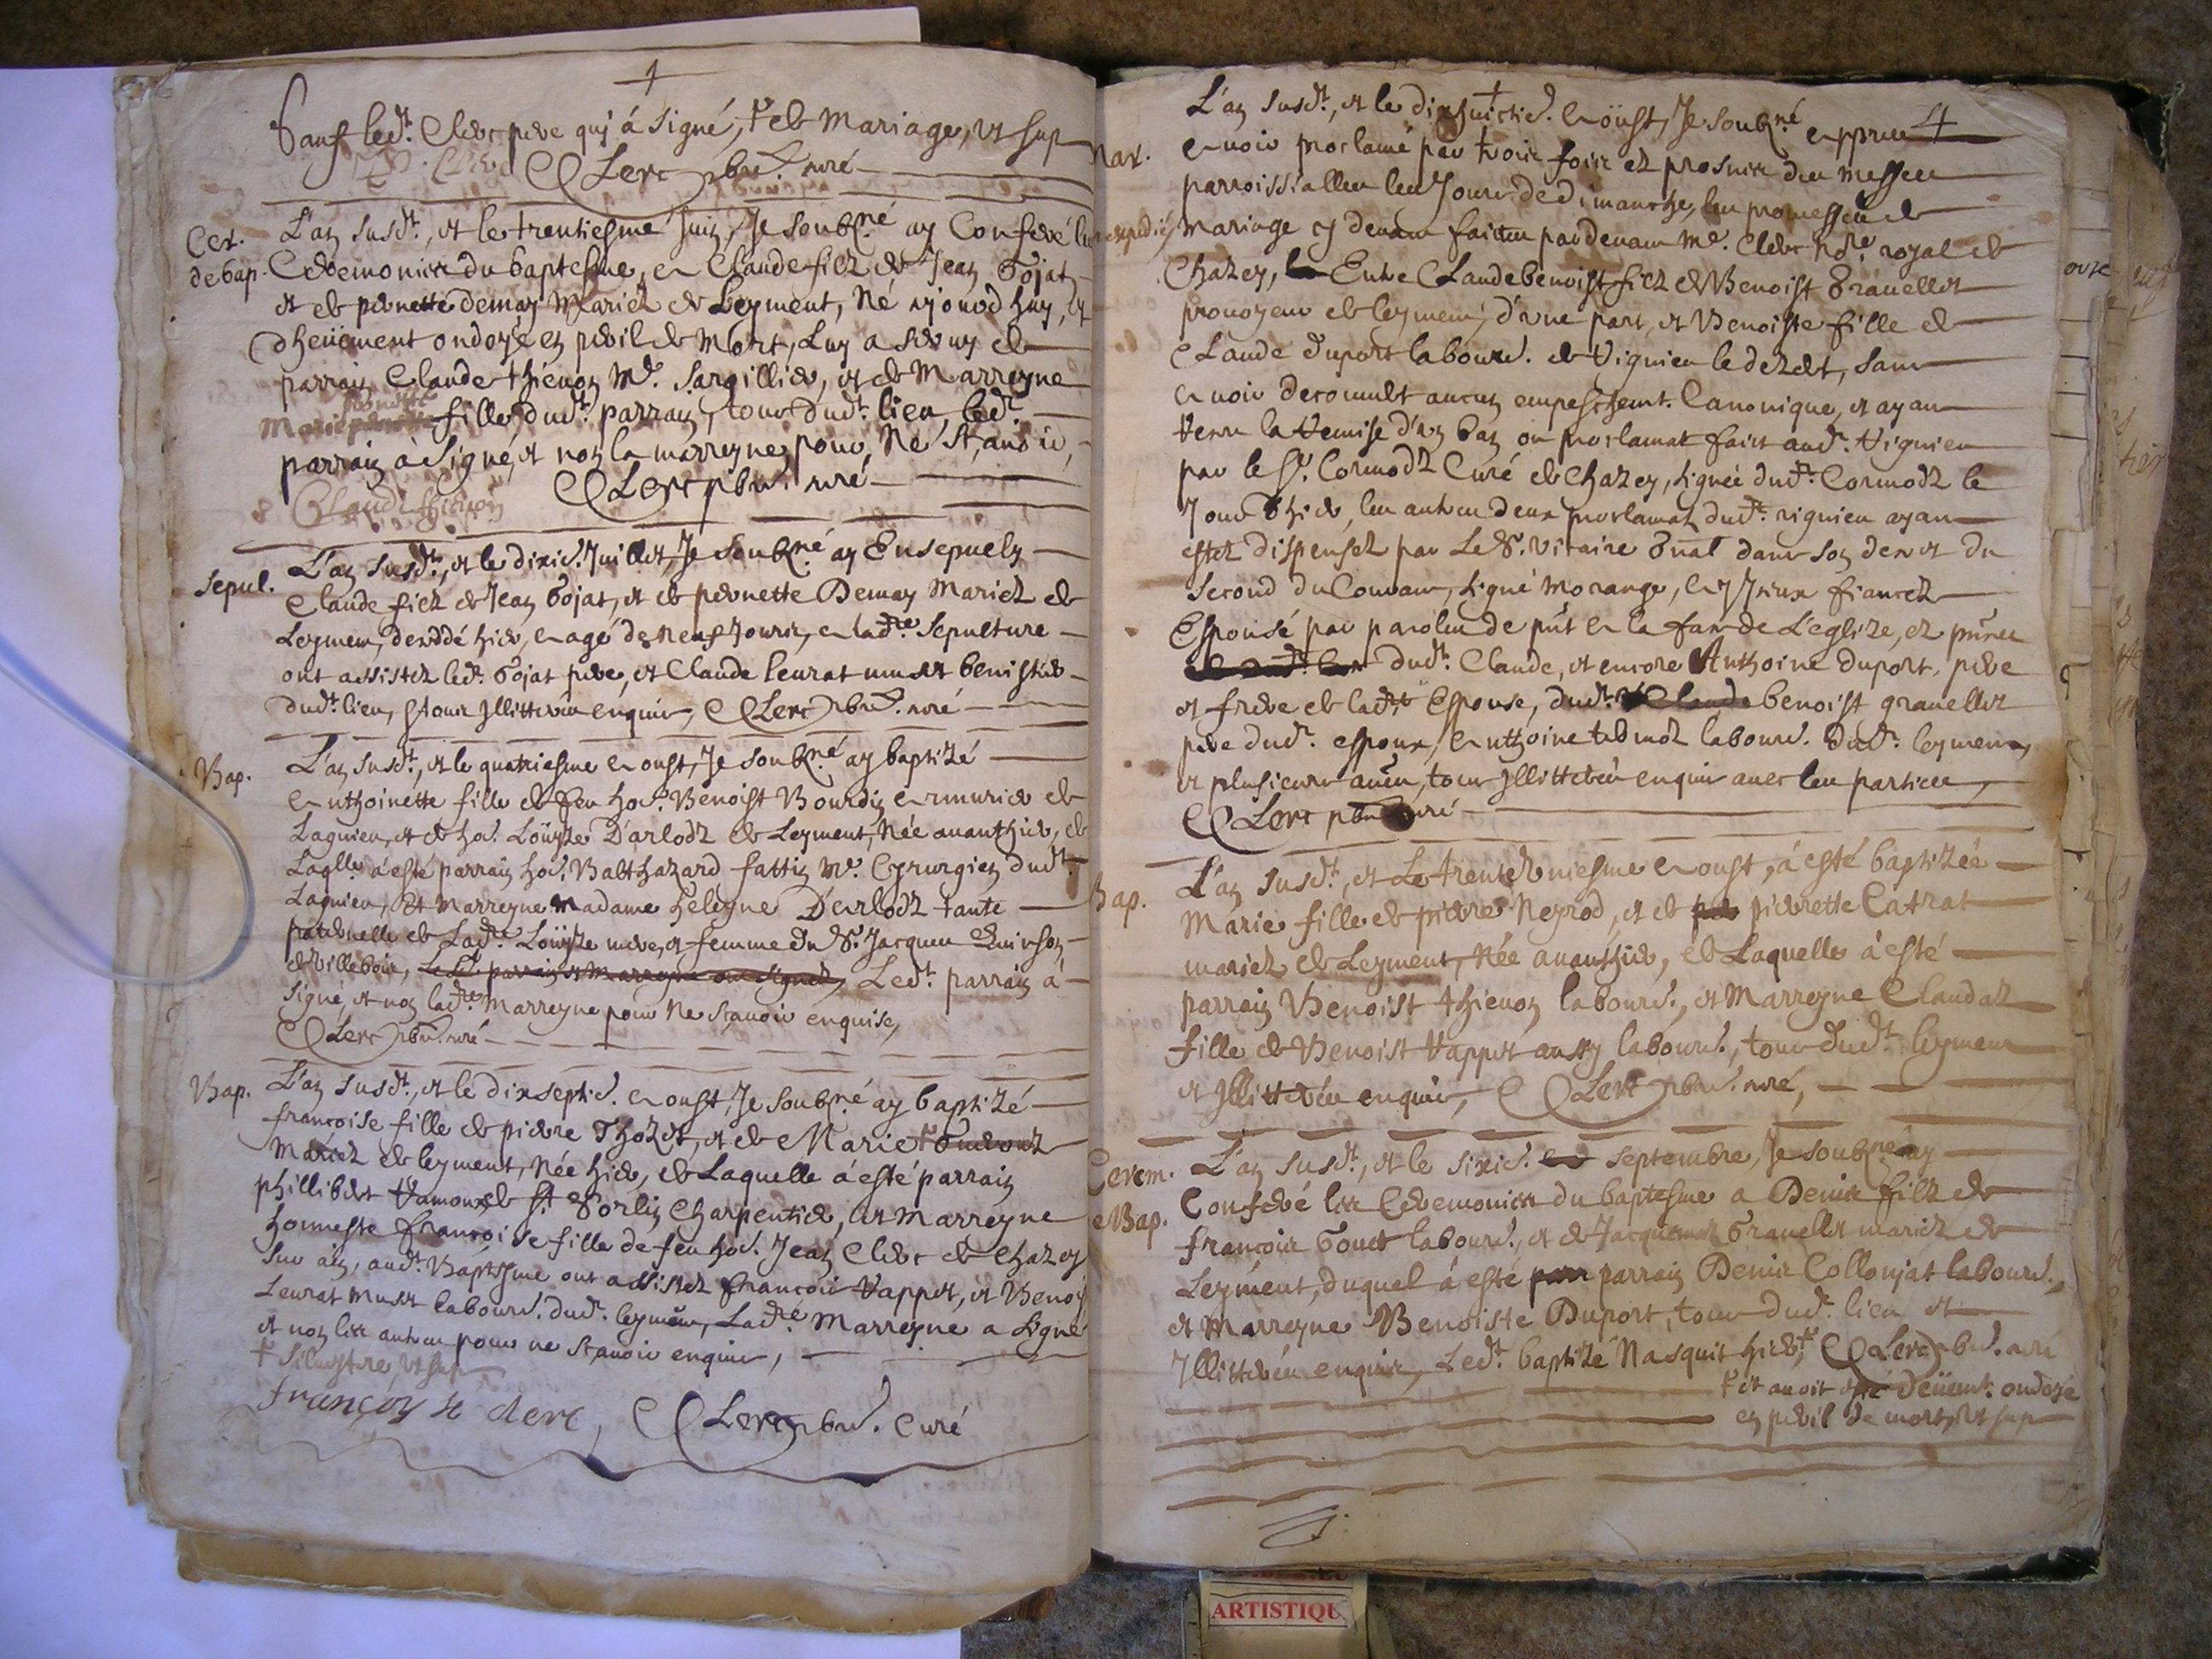 Sauf led.t Clerc pere quj á signé, † de mariage, ut sup
Clerc pbre. curé
Cer.
de bap.
L'an susd.t, et le trentiesme Juin, Je soubz.né ay Conferé les
Ceremonies du baptesme, a Claude filz de Jean Gojat
et de pernette demay Mariez de Leyment, Né ajourd'huy, et
dheüement ondoyé en peril de Mort, Luy a servy de
parrain Claude thienon M.e Sargillier, et de Marreyne
Marie fille dud.t parrain, tous dud.t lieu led.t
parrain à signé, et non la marreyne pour Ne Scavoir,
Claude thienon Clerc pbre. curé
Sepul.
L'an susd.t, et le dixie. Juillet, Je soubz.né ay Ensepuely
Claude filz de Jean Gojat, et de pernette Demay Mariez de
Leymen, decedé hier, eagé de Neuf Jours, a lad.te Sepulture
ont assistez led.t Gojat pere, et Claude Leurat benistier
dud.t lieu, Illitterez enquis, Clerc pbre. curé
Bap.
L'an susd.t, et le quatriesme Aoust, Je soubz.né ay baptizé
Anthoinette fille de feu ho.e Benoist Bourdin Armurier de
Lagnieu, et de ho.e Loüyze D'arlodz de Leyment, Née auanthier, de
Laqlle. a esté parrain ho.e Balthazard fattin M.e Cyrurgien dud.t
Lagnieu, Et Marreyne Madame heleyne D'arlodz tante
paternelle de Lad.te Loüyze mere, et femme du S.r Jacques Quinson
de villebois, Led.t parrain et Marreyne ont signez, Led.t parrain à
signé, et non lad.te Marreyne pour Ne Scauoir enquise,
Clerc pbre. curé
Bap.
L'an susd.t, et le dixseptie. Aoust, Je soubz.né ay baptizé
francoise fille de pierre Thozet, et de Marie †
Mariez de leyment, Née hier, de Laquelle á esté parrain
phillibert Vamoux de S.t Sorlin Charpentier, et Marreyne
honneste francoise fille de feu ho.e Jean Clerc de Chazey
sur ain, aud.t Baptesme ont assistez francois Vappet, et Benoy
Leurat labour.e dud.t leyment, Lad.te Marreyne a signé
et non les autres pour ne Scauoir enquis,
† Siluestre, ut sup
francoy se clerc, Clerc pbre. Curé
4
Mar.
expedié
L'an susd.t, et le dixhuictie. Aoüst, Je soubz.né appres
auoir proclamé par trois fois es prosnes des messes
parroissialles les Jours de dimanche, les promesses de
Mariage cy deuant faictes pardeuant M.e Clerc No.re royal de
Chazey, Entre Claude benoist filz de Benoist Grauellet
prouoyeur de leyment, d'vne part, et Benoiste fille de
Claude duport labour.e de Vignieu le dezert, sans
auoir decouuert aucun empeschemt. Canonique, et ayans
Veue la remise d'vn ban ou proclamat faict aud.t Vignieu
par le S.r Cormodz Curé de Chazey, signée dud.t Cormodz le
Jour d'hier, les autres deux proclamatz dud.t vignieu ayans
estez dispensez par Le S.r Vicaire G'nal dans son decret du
second du Courant, signé Morange, les fiancez
Espousé par paroles de p'nt a la face de L'eglize, es p'nces
dud.t Claude, et encore Anthoine duport, pere
et frere de lad.te Espouse, dud.t Claude benoist grauellet
pere dud.t espoux, Anthoine labour.e dud.t leyment,
et plusieurs au'es, tous Illitterez enquis auec les parties,
Clerc pbre curé
Bap.
L'an susd.t, et Le trenteuniesme Aoust, á esté baptizée
Marie fille de pierre Neyrod, et de pierrette Catrat
mariez de Leyment, Née auanthier, de Laquelle à esté
parrain Benoist thienon labour.e, et Marreyne Claudaz
fille de Benoist Vappet aussy labour.e, tous dud.t leyment
et Illitterez enquis, Clerc pbre. curé,
Cerem.
de Bap.
L'an susd.t, et le sixie. septembre, Je soubz.né ay
Conferé les Ceremonies du baptesme a Denis filz de
francois Gouet labour.e, et de Jacquemaz Grauellet mariez de
Leyment, duquel á esté parrain Denis Collonjat labour.e,
et Marreyne Benoiste Duport, tous dud.t lieu et
Illitterez enquis, Led.t baptizé Nasquit hier,† Clerc pbre. curé
† et auoit esté Deüemt. ondoyé
en peril de mort, ut sup
ARTISTIQU